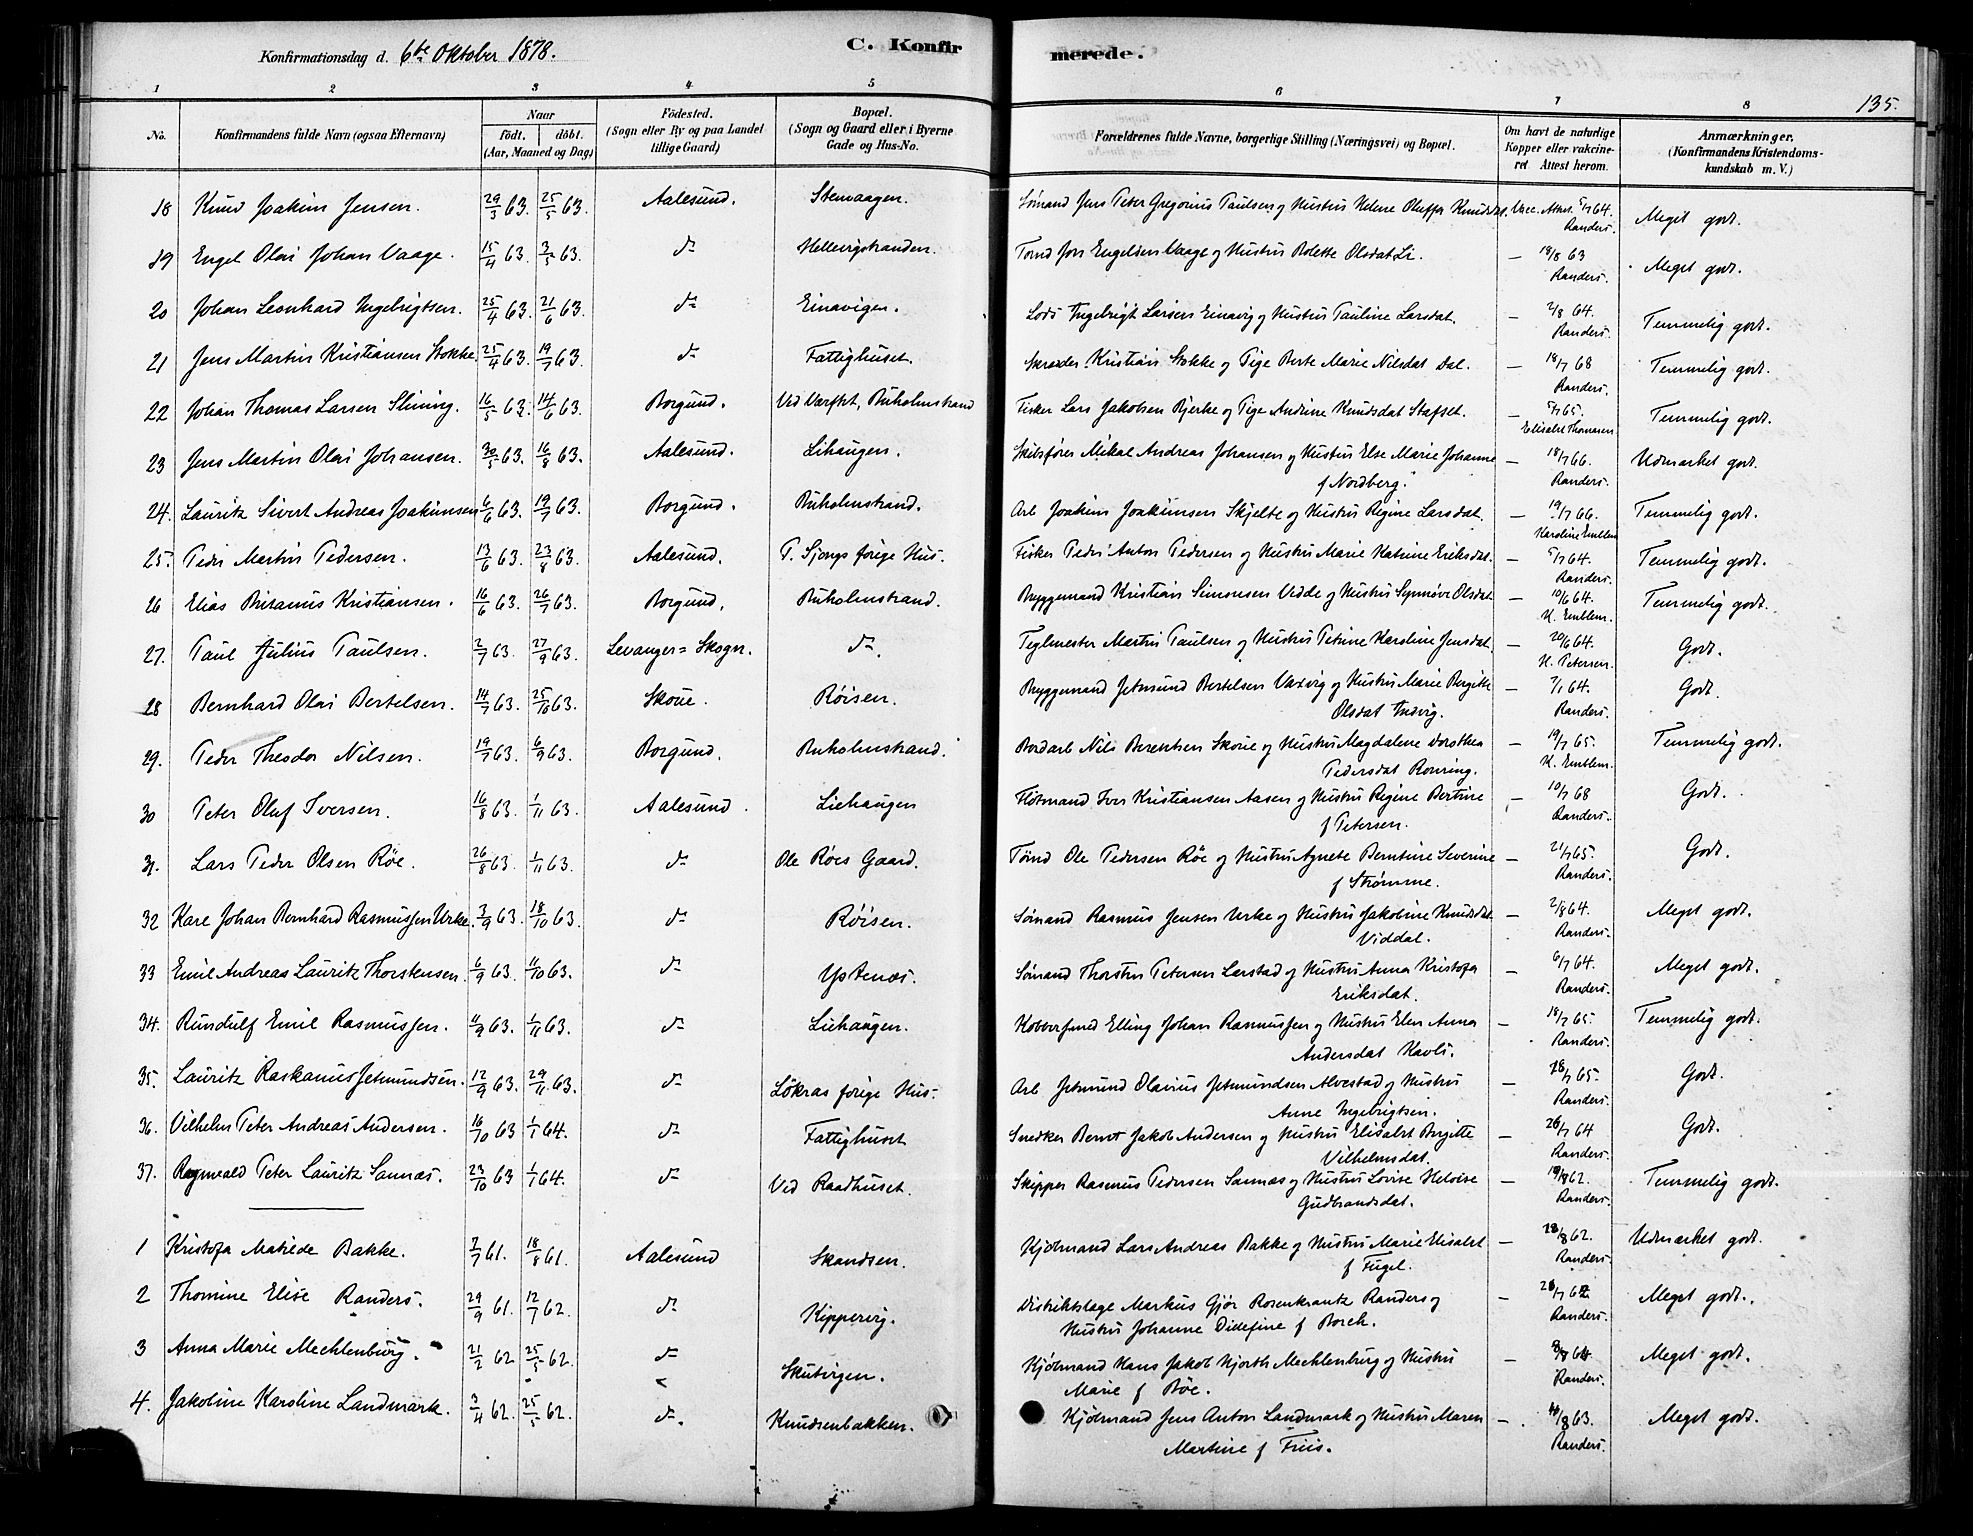 Konfirmationsdag d. 6te Oktober 1878.
C. Konfirmerede.
135.
1 2 3 4 5 6 7 8
No. | Konfirmandens fulde Navn (ogsaa Efternavn) | Naar födt. döbt. (Aar, Maaned og Dag) | Födested. (Sogn eller By og paa Landet tillige Gaard) | Bopæl. (Sogn og Gaard eller i Byerne Gade og Hus-No. | Forældrenes fulde Navne, borgerlige Stilling (Næringsvei) og Bopæl. | Om havt de naturlige Kopper eller vakcineret Attest herom. | Anmærkninger. (Konfirmandens Kristendomskundskab m. V.)
18 Knud Joakim Jensen. 29/3 63. 25/5 63. Aalesund. Stenvaagen. Sømand Jens Peter Gregorius Paulsen og Hustru Helene Oluffa Knudsdat. Vacc. Attest 5/7 64. Randers. Meget godt.
19 Engel Olai Johan Vaage. 15/4 63. 3/5 63. do Hellevigstranden. Tømd Jon Engelsen Vaage og Hustru Bolette Olsdat Li. — 18/8 63 Randers. Meget godt.
20 Johan Leonhard Ingebrigtsen. 25/4 63. 21/6 63. do Einavigen. Lods Ingebrigt Larsen Einavig og Hustru Pauline Larsdat. — 2/8 64. Randers. Temmelig godt.
21 Jens Martin Kristiansen Stokke. 25/4 63. 19/7 63. do Fattighuset. Skræder Kristian Stokke og Pige Berte Marie Nilsdat Dal. — 18/7 68 Randers. Temmelig godt.
22 Johan Thomas Larsen Slining. 16/5 63. 14/6 63. Borgund. Ved Værftet, Buholmstrand Fisker Lars Jakobsen Bjerke og Pige Andrine Knudsdat Stafset. — 5/7 65. Elisabet Thomasen Temmelig godt.
23 Jens Martin Olai Johansen. 30/5 63. 16/8 63. Aalesund. Lihaugen. Skibsfører Mikal Andreas Johansen og Hustru Else Marie Johanne f Nordberg. — 18/7 66. Randers. Udmærket godt.
24. Lauritz Sivert Andreas Joakimsen 6/6 63. 19/7 63. Borgund. Buholmstrand. Arb Joakim Joakimsen Skjelte og Hustru Regine Larsdat. — 19/7 66. Karoline Emblem Temmelig godt.
25. Peder Martin Pedersen. 13/6 63. 23/8 63. Aalesund. P. Sjongs forige Hus. Fisker Peder Anton Pedersen og Hustru Marie Katrine Eriksdat. — 5/7 64. Randers. Temmelig godt.
26 Elias Kristiansen. 16/6 63. 26/7 63. Borgund. Buholmstrand. Byggemand Kristian Simonsen Vedde og Hustru Synnøve Olsdat. — 10/6 64. K. Emblem. Temmelig godt.
27. Paul Julius Paulsen. 2/7 63. 27/9 63. Levanger = Skogn. do. Teglmester Martin Paulsen og Hustru Petrine Karoline Jensdat. — 20/6 64. K. Petersen. Godt.
28 Bernhard Olai Bertelsen. 14/7 63. 25/10 63. Skoue. Røisen. Byggemand Jetmund Bertelsen Vaxvig og Hustru Marie Bergitte Olsdat Indvig. — 7/1 64. Randers. Godt.
29. Peder Theodor Nilsen. 19/7 63. 6/9 63. Borgund. Buholmstrand. Bordarb Nils Berentsen Skoue og Hustru Magdalene Dorothea Pedersdat Rouring. — 19/7 65. K. Emblem. Temmelig godt.
30 Peter Oluf Iversen. 16/8 63. 1/11 63. Aalesund. Liehaugen Flotmand Iver Kristiansen Aasen og Hustru Regine Bertine f Petersen. — 10/7 68 Randers. Godt.
31. Lars Peder Olsen Røe. 26/8 63. 1/11 63. do Ole Røes Gaard. Tømd Ole Pedersen Røe og Hustru Agnete Berntine Severine f Strømme. — 21/7 65. Randers. Godt.
32 Kare Johan Bernhard Rasmussen Urke. 3/9 63. 18/10 63. do Røisen. Sømand Rasmus Jensen Urke og Hustru Jakobine Knudsdat Viddal. — 2/8 64. Randers. Meget godt.
33 Emil Andreas Lauritz Thorstensen. 6/9 63. 11/10 63. do Ystenæs. Sømand Thorsten Petersen Larstad og Hustru Anna Kristofa Eriksdat. — 6/7 64. Randers. Meget godt.
34. Rundulf Emil Rasmussen. 11/9 63. 1/11 63. do Liehaugen. Kobbersmed Elling Johan Rasmussen og Hustru Elen Anna Andersdat Havli. — 18/7 65. Randers. Temmelig godt.
35. Lauritz Raskanus Jetmundsen. 12/9 63. 29/11 63. do Løkras forige Hus. Arb Jetmund Olavius Jetmundsen Alvestad og Hustru Anne Ingebrigtsen. — 28/7 65. Randers. Godt.
36. Vilhelm Peter Andreas Andersen. 16/10 63 1/1 64. do Fattighuset Snedker Bernt Jakob Andersen og Hustru Elisabet Bergitte Vilhelmsdat. — 26/7 64 Randers. Godt.
37. Ragnvald Peter Lauritz Sannæs. 23/10 63 1/1 64. do Ved Raadhuset. Skipper Rasmus Pedersen Sannæs og Hustru Lovise Heloise Gudbrandsdat. — 19/8 62. Randers. Temmelig godt.
1 Kristofa Matilde Bakke. 7/7 61. 18/8 61. Aalesund Skandsen. Kjøbmand Lars Andreas Bakke og Hustru Marie Elisabet f Fugel. — 28/8 62. Randers. Udmærket godt.
2 Thomine Elise Randers. 29/9 61. 12/7 62. do Kippervig. Distriktslæge Markus Gjør Rosenkrantz Randers og Hustru Johanne Didefine f Borch. — 26/7 62 Randers. Meget godt.
3 Anna Marie Mechlenburg. 21/2 62 25/5 62. do Skutvigen. Kjøbmand Hans Jakob Hjorth Mechlenburg og Hustru Marie f Røe. — 8/8 64 Randers. Meget godt.
4. Jakobine Karoline Landmark. 3/4 62. 25/5 62. do. Knudsenbakken. Kjøbmand Jens Anton Landmark og Hustru Maren Martine f Friis. — 4/8 63. Randers. Meget godt.